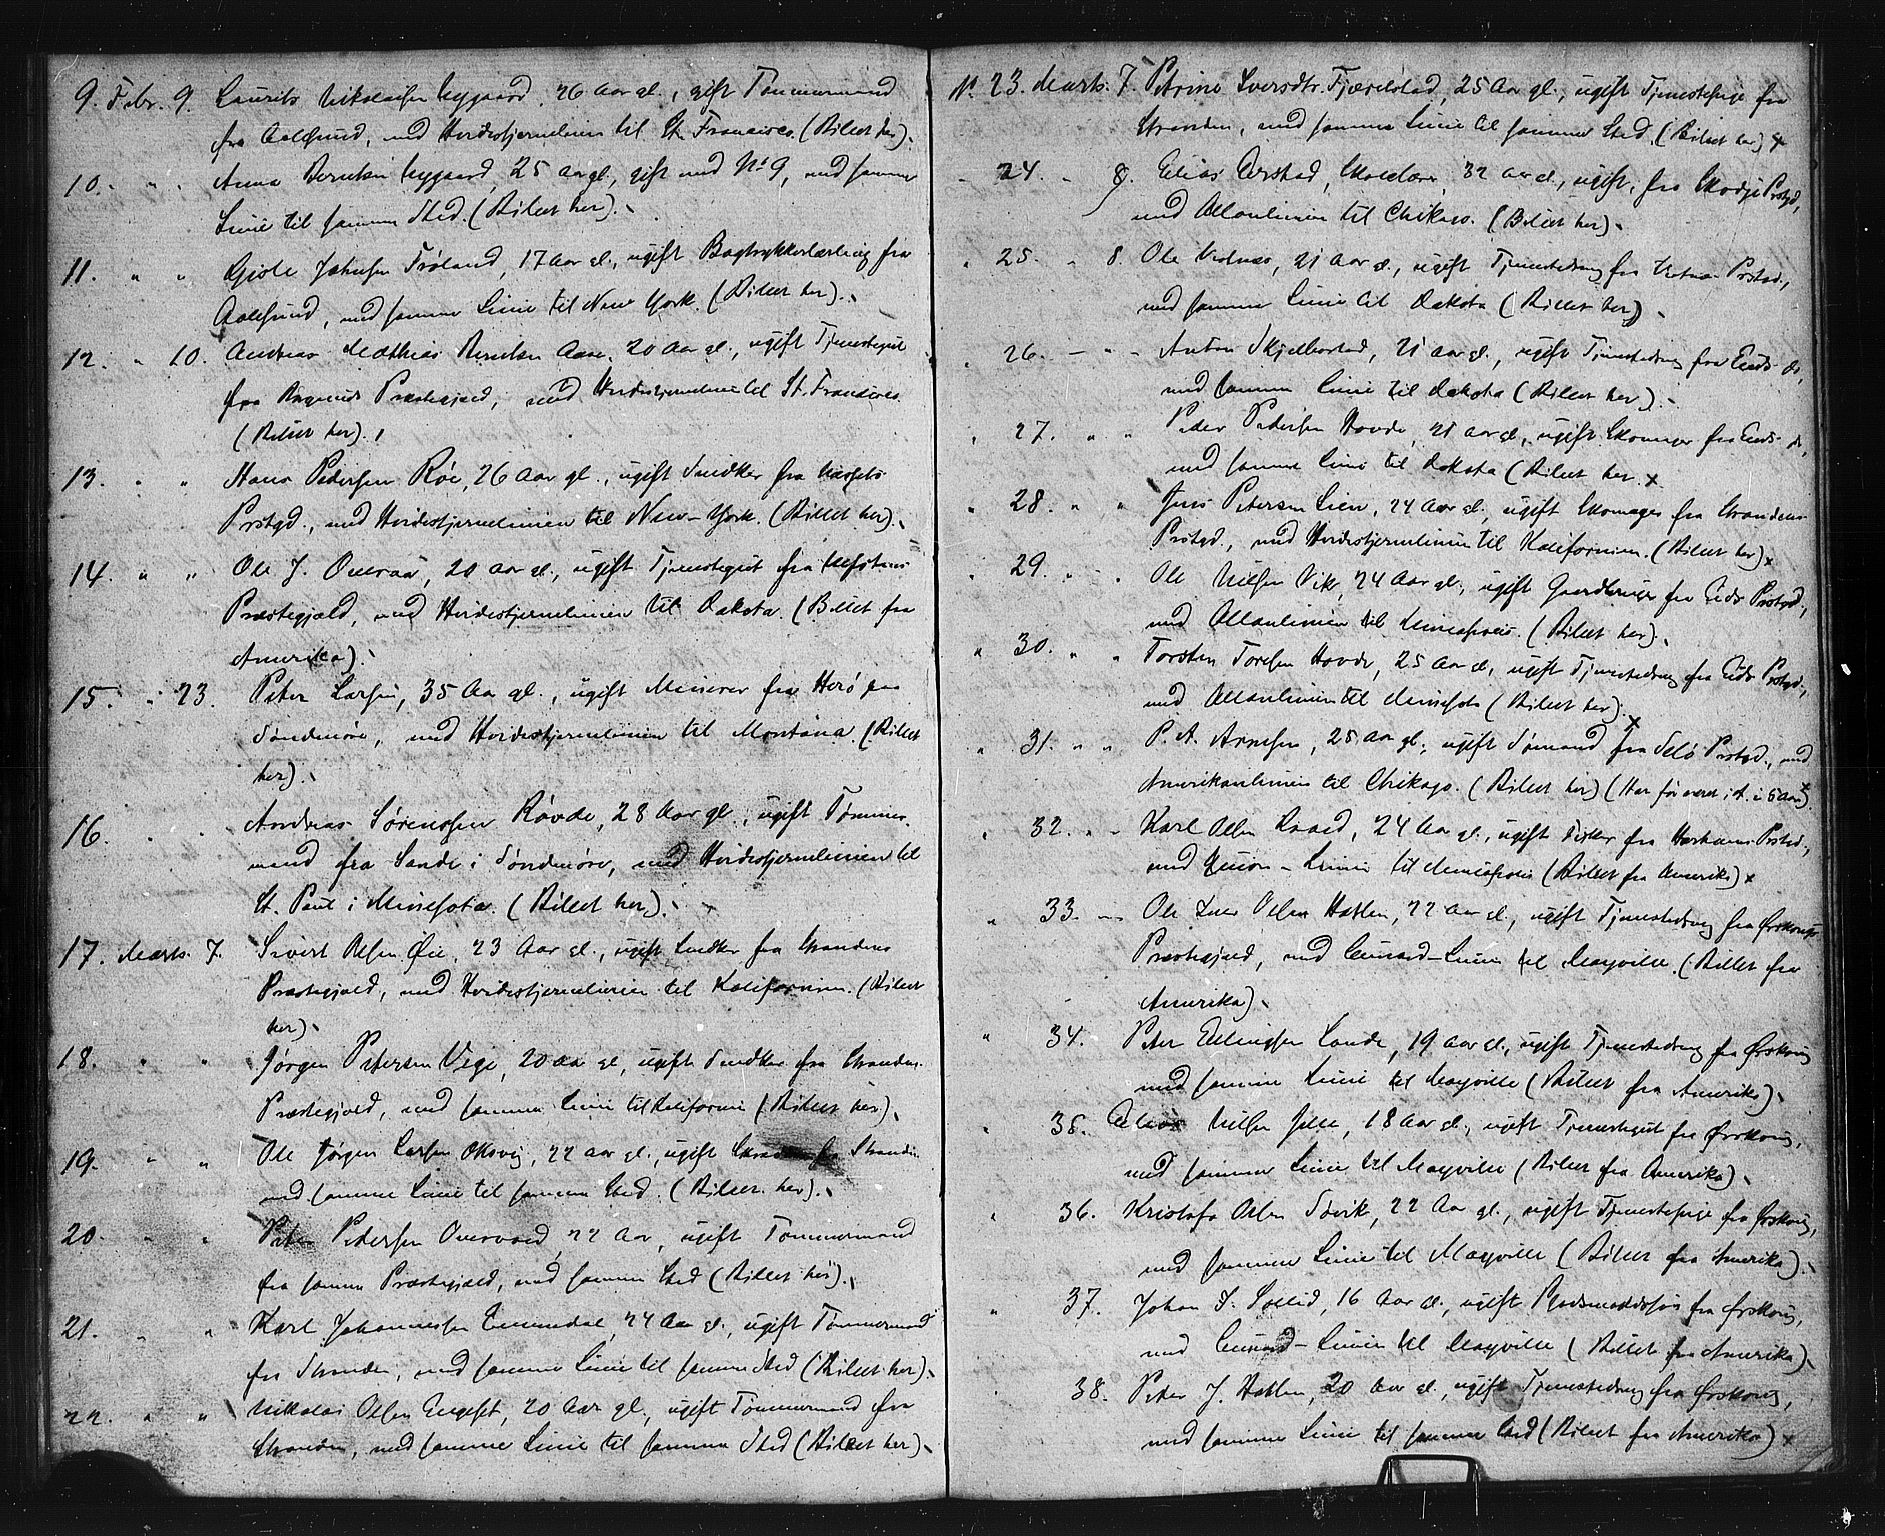 9. Febr. 9. Laurits Nikolaisen Nygaard, 26 Aar gl., gift Tømmermand
fra Aalesund, med Hvidestjernelinien til St. Francisco. (Billet her).
10. " " Anna Berntsen Nygaard, 25 Aar gl., gift med No 9, med samme
Linie til samme Sted. (Billet her).
11. " " Gjøle Johnsen Frøland, 17 Aar gl., ugift Bogtrykkerlærling fra
Aalesund, med samme Linie til New York. (Billet her).
12. " 10. Andreas Matthias Berntsen Aase, 20 Aar gl., ugift Tjenestegut
fra Borgunds Præstegjæld, med Hvidestjernelinie til St. Francisco
(Billet her).
13. " " Hans Pedersen Røe, 26 Aar gl., ugift Snedker fra Næssets
Prstgd., med Hvidestjernelinien til New-York. (Billet her).
14. " " Ole J. Overaa, 20 Aar gl., ugift Tjenestegut fra Ulfstens
Præstegjæld, med Hvidestjernelinien til Dakota. (Billet fra
Amerika).
15. " 23. Peter Larsen, 35 Aar gl., ugift Minerer fra Herø paa
Søndmøre, med Hvidestjernelinien til Montana. (Billet
her).
16. " " Andreas Sørenssen Røvde, 28 Aar gl., ugift Tømmer-
mand fra Sande i Søndmøre, med Hvidestjernelinien til
St. Paul i Minesota. (Billet her).
17. Marts. 7. Sivert Olsen Øie, 23 Aar gl., ugift Snedker fra Strandens
Præstegjæld, med Hvidestjernelinien til Kalifornien. (Billet
her).
18. " " Jørgen Petersen Vege, 20 Aar gl., ugift Snedker fra Strandens
Præstegjæld, med samme Linie til Kalifornien (Billet her).
19. " " Ole Jørgen Larsen Oksvig, 22 Aar gl., ugift fra Stranden
med samme Linie til samme Sted. (Billet her).
20. " " Peter Pedersen Overvold, 22 Aar, ugift Tømmermand
fra samme Præstegjæld, med samme Sted (Billet her).
21. " " Karl Johannessen Emmdal, 24 Aar gl., ugift Tømmermand
fra Stranden, med samme Linie til samme Sted (Billet her).
22. " " Nikolai Olsen Engeset, 20 Aar gl., ugift Tømmermand fra
Stranden, med samme Linie til samme Sted (Billet her).
N. 23. Marts. 7. Petrine Iversdtr. Fjørelstad, 25 Aar gl., ugift Tjenestepige fra
Stranden, med samme Linie til samme Sted. (Billet her) x
24. " 8. Elias Aarstad, Skolelærer, 32 Aar gl., ugift, fra Skodje Prstgd,
med Allanlinien til Chikago. (Billet her).
" 25. " 8. Ole Vestnæs, 21 Aar gl., ugift Tjenestedreng fra Vestnæs Prstgd.,
med samme Linie til Dakota (Billet her).
" 26. — " - Anton Skjelbostad, 21 Aar gl., ugift Tjenestedreng fra Eids do,
med samme Linie til Dakota (Billet her).
" 27. " " Peder Pedersen Hovde, 21 Aar gl., ugift Skomager fra Eids do,
med samme Linie til Dakota (Billet her. x
" 28. " " Jens Petersen Lien, 24 Aar gl., ugift Skomager fra Strandens
Prstgd., med Hvidestjernelinien til Kalifornien. (Billet her) x
" 29. " " Ole Nilsen Vik, 24 Aar gl., ugift Gaardbruger fra Eids Prstgd.,
med Allanlinien til Mineapolis. (Billet her).
" 30. " " Torsten Toresen Hovde, 25 Aar gl., ugift Tjenestedreng fra Eids Prstgd.,
med Allanlinien til Minesota (Billet her). x
" 31. " " P. A. Arnesen, 25 Aar gl., ugift Sømand fra Selø Prstgd., med
Amerikanlinien til Chikago. (Billet her) (Har før været i A. i 5 Aar).
" 32. " - Karl Olsen Raaed, 24 Aar gl., ugift Fisker fra Harhams Prstgd.,
med Guion-Linie til Mineapolis (Billet fra Amerika) x
" 33. — Ole Iver Olsen Hatlen, 22 Aar gl., ugift Tjenestedreng fra Ørskougs
Præstegjæld, med Cunard-Linie til Mayville. (Billet fra
Amerika).
" 34. Peter Ellingsen Lande, 19 Aar gl., ugift Tjenestedreng fra Ørskoug
med samme Linie til Mayville (Billet fra Amerika).
" 35. Nilsen Jelle, 18 Aar gl., ugift Tjenestegut fra Ørskoug,
med samme Linie til Mayville (Billet fra Amerika).
" 36. Kristofa Olsen Søvik, 22 Aar gl., ugift Tjenestepige fra Ørskoug,
med samme Linie til Mayville (Billet fra Amerika).
" 37. Johan J. Sollid, 16 Aar gl., ugift fra Ørskoug,
med Cunard-Linien til Mayville (Billet fra Amerika).
38. Peter J. Hatlen, 20 Aar gl., ugift Tjenestedreng fra Ørskoug,
med samme Linie til samme Sted (Billet fra Amerika) x